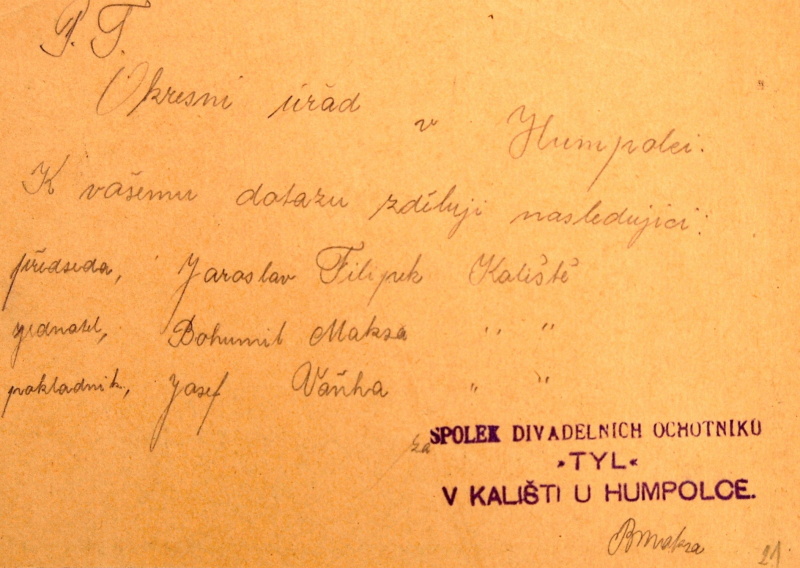 P. T.
Okresní úřad
v Humpolci.
K vašemu dotazu zděluji nasledujici:
předseda, Jaroslav Filipek Kaliště
jednatel, Bohumil Maksa " "
pokladník, Josef Váňha " "
za SPOLEK DIVADELNÍCH OCHOTNÍKŮ
»TYL«
V KALIŠTI U HUMPOLCE.
BMaksa
21